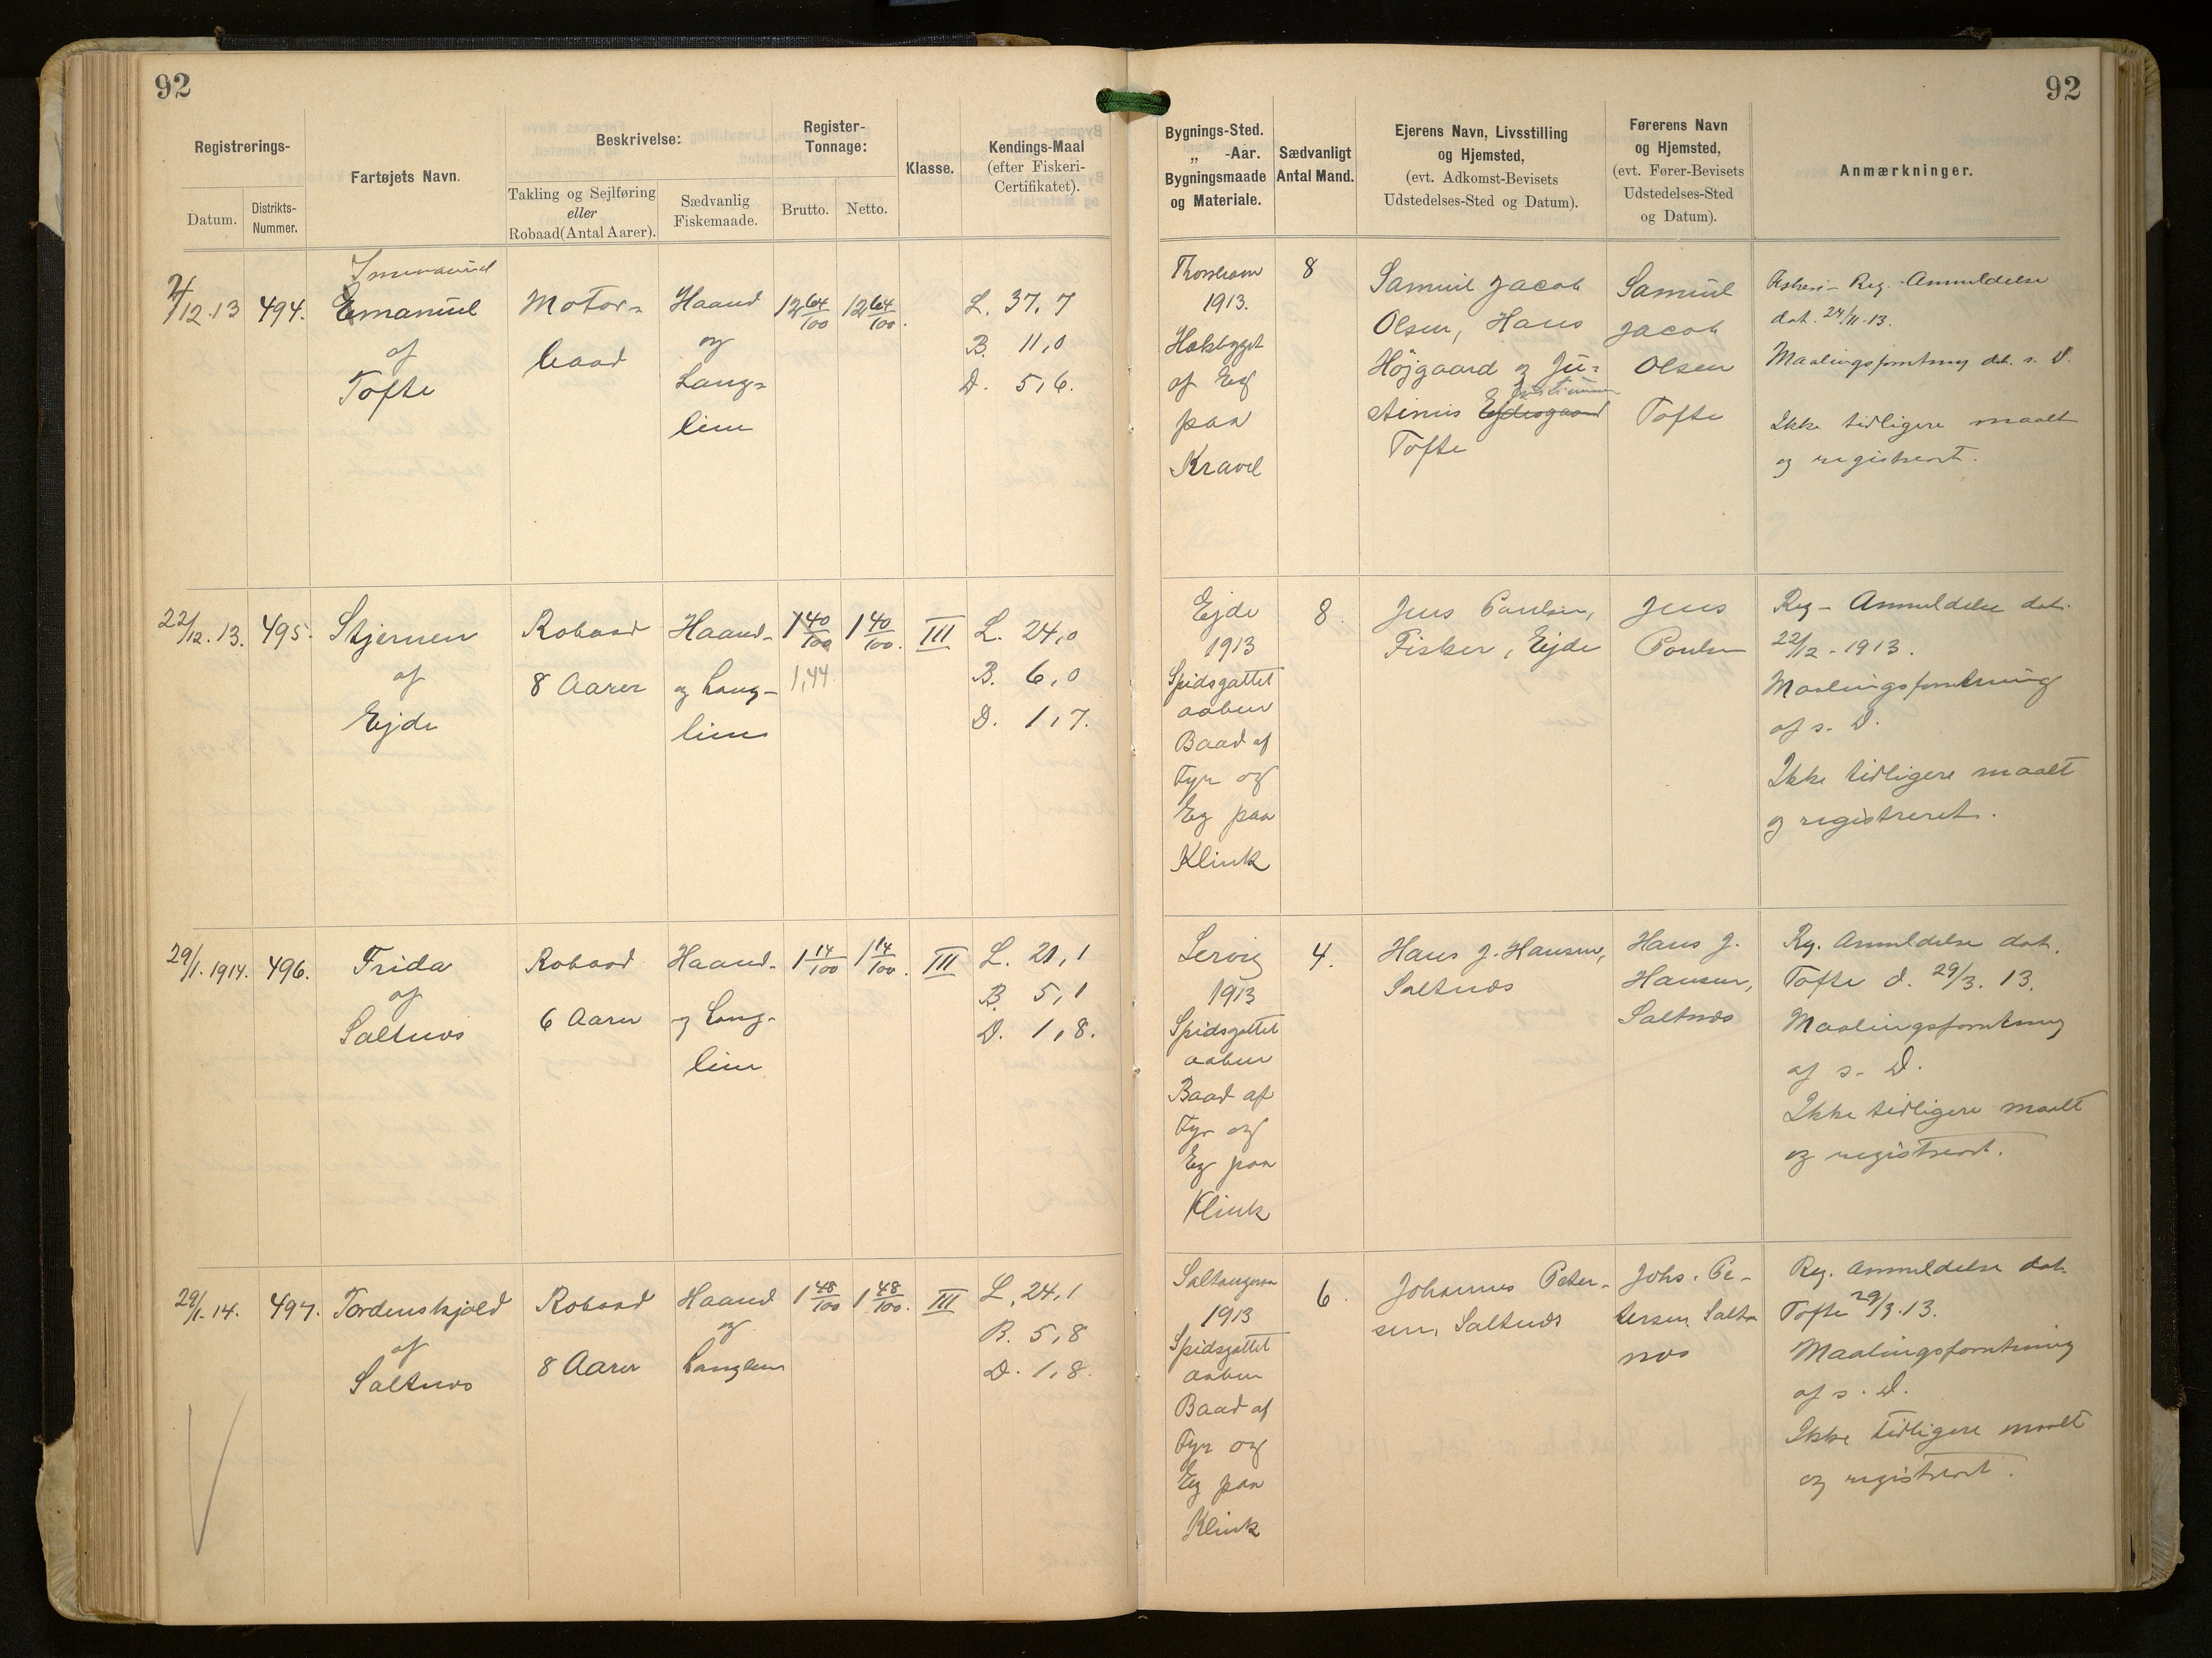 92
92
Registrerings-
Datum.
Distrikts-
Nummer.
Fartøjets Navn.
Beskrivelse:
Takling og Sejlføring
eller
Robaad(Antal Aarer).
Sædvanlig
Fiskemaade.
Register-
Tonnage:
Brutto.
Netto.
Klasse.
Kendings-Maal
(efter Fiskeri-
Certifikatet).
Bygnings-Sted.
„ -Aar.
Bygningsmaade
og Materiale.
Sædvanligt
Antal Mand.
Ejerens Navn, Livsstilling
og Hjemsted,
(evt. Adkomst-Bevisets
Udstedelses-Sted og Datum).
Førerens Navn
og Hjemsted,
(evt. Fører-Bevisets
Udstedelses-Sted
og Datum).
Anmærkninger.
2/12.13
494.
Immanuel
Emanuel
af
Tofte
Motor-
baad
Haand
og
Lang-
line
12 64/100
12 64/100.
L. 37,7
B. 11,0
D. 5,6.
Thorshavn
1913.
Hækbygget
af Eg
paa
Kravel
8
Samuel Jacob
Olsen, Hans
Højgaard og Ju-
stinus Ejdesgaard
Tofte
Samuel
Jacob
Olsen
Tofte
Fiskeri-Reg.-Anmeldelse
dat. 24/11-13.
Maalingsforretning dat. s. D.
Ikke tidligere maalt
og registreret.
22/12.13.
495.
Stjernen
af
Ejde
Robaad
8 Aarer
Haand-
og Lang-
line
1 40/100
1,44
1 40/100.
III
L. 24,0
B. 6,0
D. 1,7.
Ejde
1913
Spidsgattet
aaben
Baad af
Fyr og
Eg paa
Klink
8.
Jens Poulsen,
Fisker, Ejde
Jens
Poulsen
Reg-Anmeldelse dat.
22/12-1913.
Maalingsforretning
af s. D.
Ikke tidligere maalt
og registreret.
29/1.1914.
496.
Frida
af
Saltnæs
Robaad
6 Aarer
Haand-
og Lang-
line
1 14/100
1 14/100.
III
L. 21,1
B. 5,1
D. 1,8.
Lervig
1913
Spidsgattet
aaben
Baad af
Fyr og
Eg paa
Klink
4.
Hans J. Hansen,
Saltnæs
Hans J.
Hansen,
Saltnæs
Reg. Anmeldelse dat.
Tofte d. 29/3.13.
Maalingsforretning
af s. D.
Ikke tidligere maalt
og registreret.
29/1-14.
497.
Tordenskjold
af
Saltnæs
Robaad
8 Aarer
Haand
og
Langline
1 48/100
1 48/100.
III
L. 24,1
B. 5,8
D. 1,8.
Saltangeraa
1913
Spidsgattet
aaben
Baad af
Fyr og
Eg paa
Klink
6.
Johannes Peter-
sen, Saltnæs
Johs. Pe-
tersen, Salt-
næs
Reg. Anmeldelse dat.
Tofte 29/3.13.
Maalingsforretning
af s. D.
Ikke tidligere maalt
og registreret.